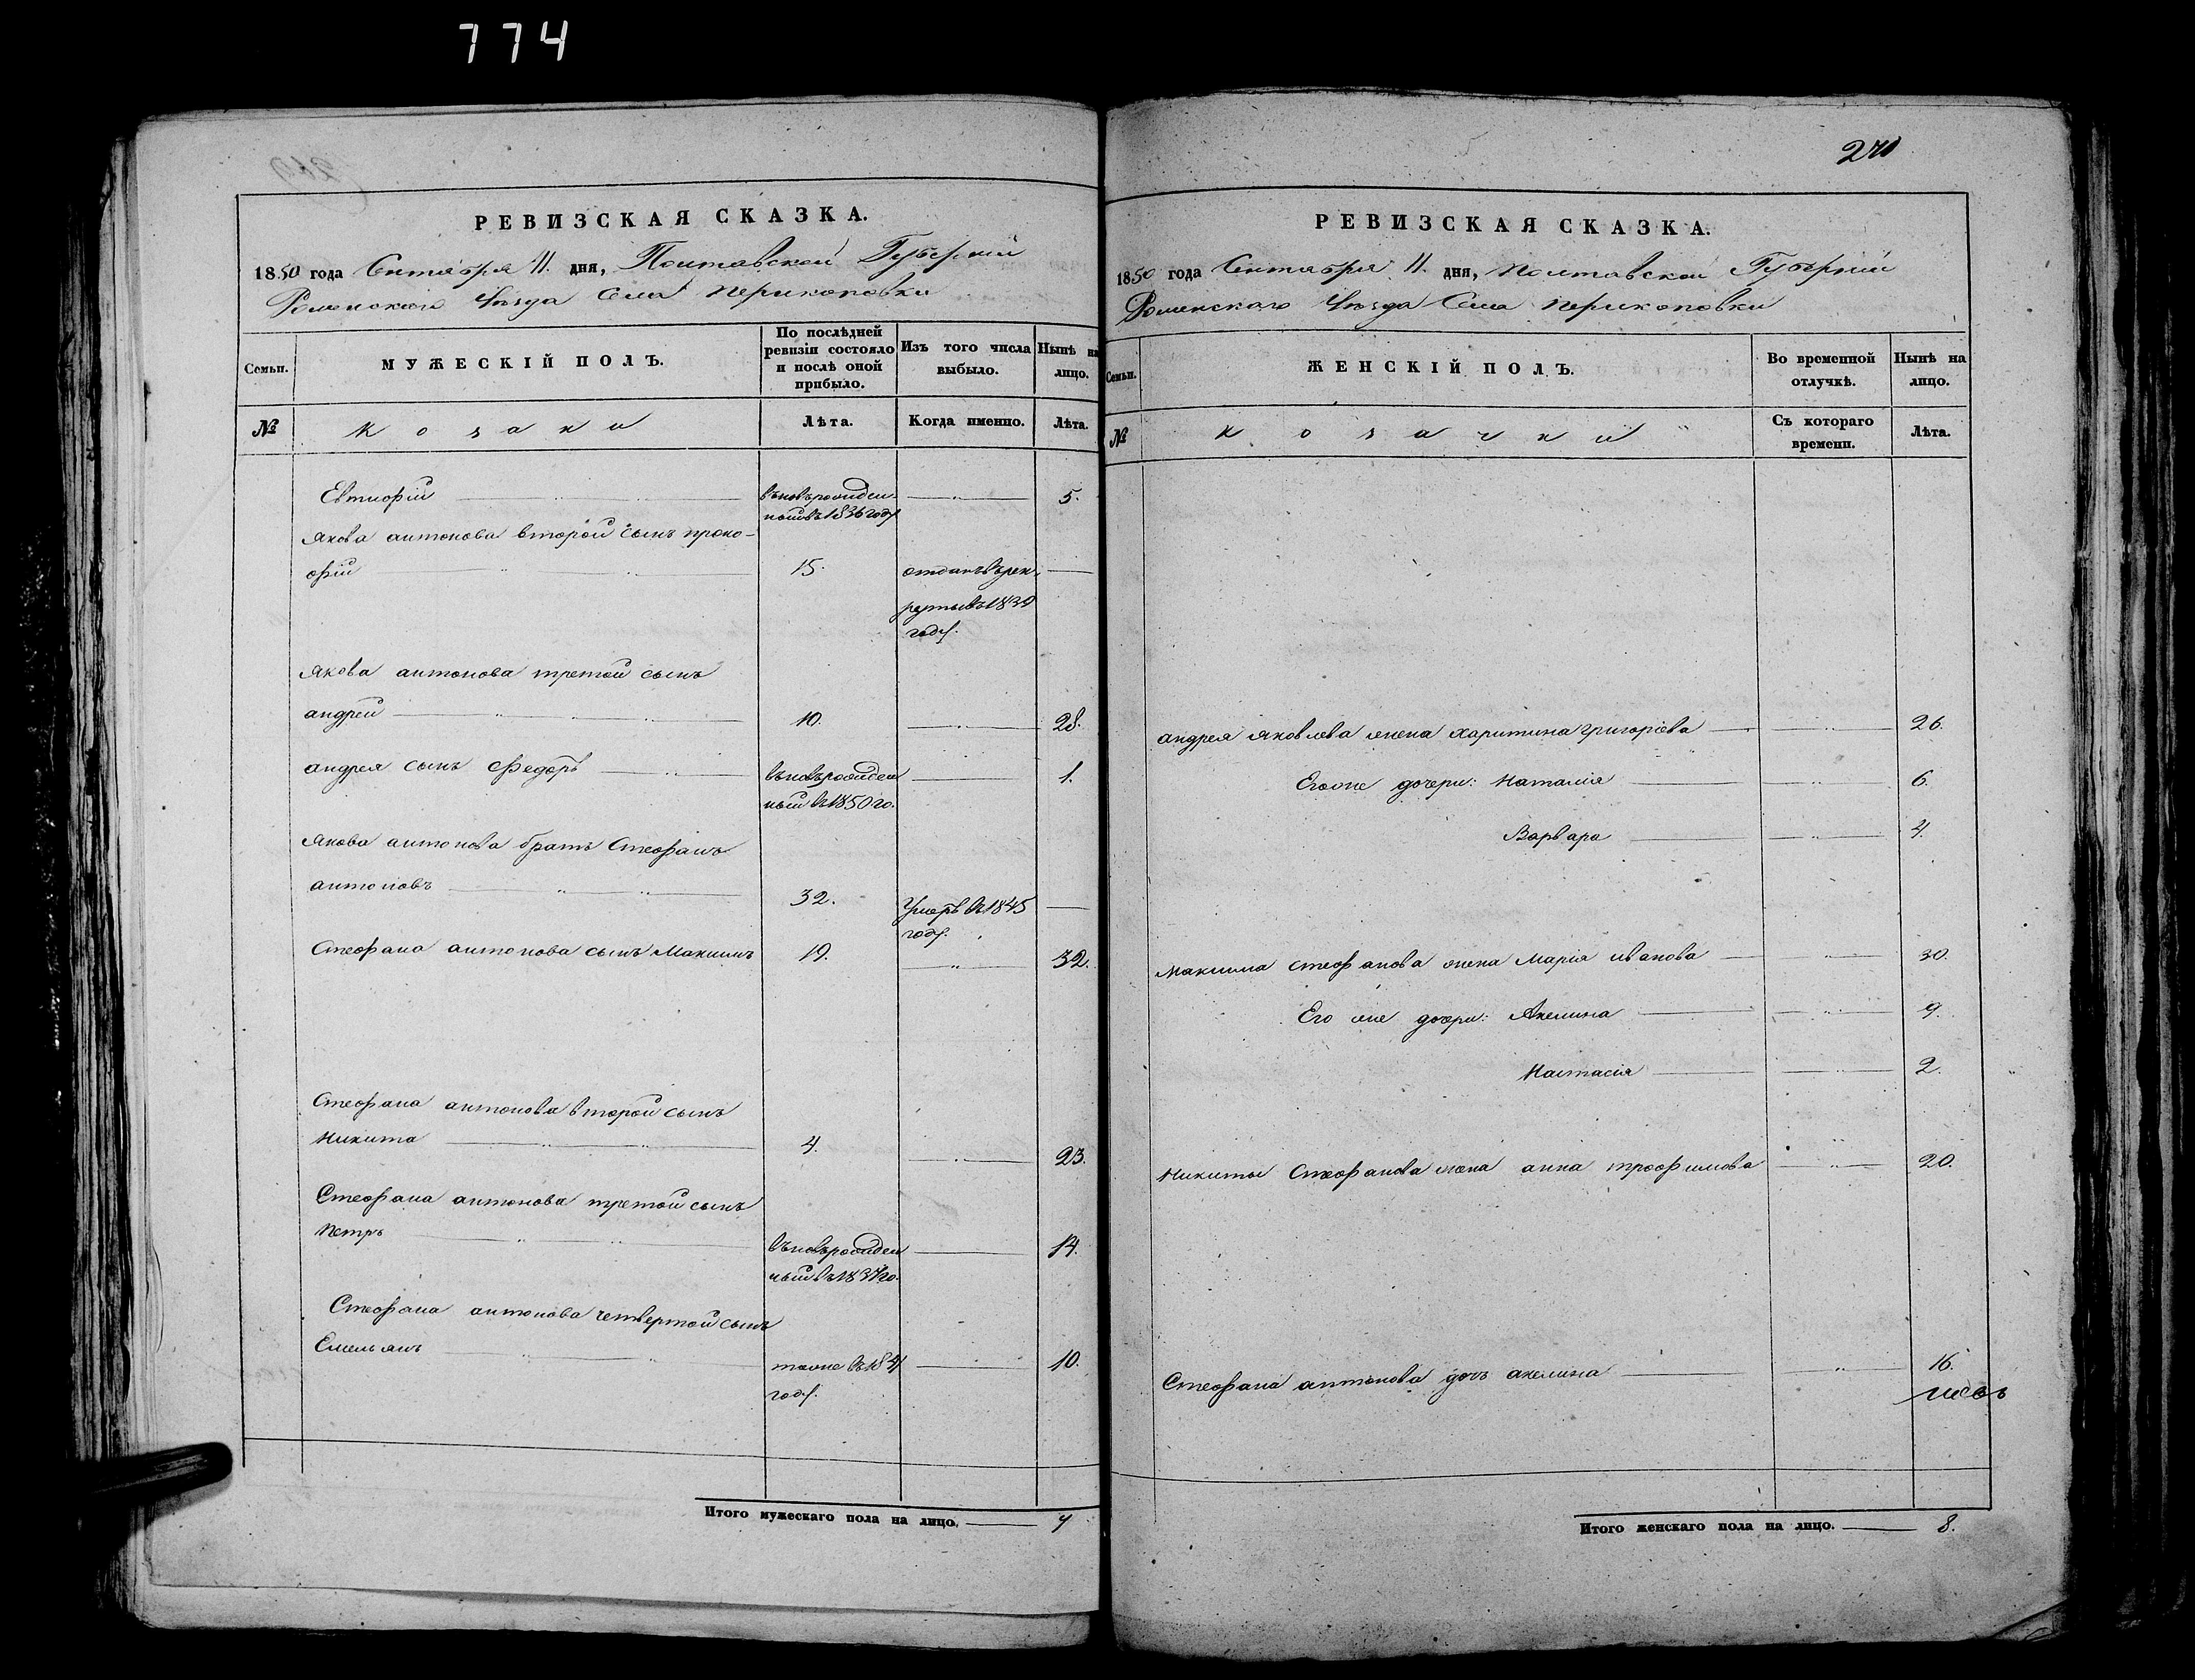 774
270
РЕВИЗСКАЯ СКАЗКА.
1850 года Сентября 11. дня, Полтавской Губерніи
Роменского Уезда Села Перикоповки
Семьи.
МУЖЕСКІЙ ПОЛЪ.
По послѣдней
ревизіи состояло
и послѣ оной
прибыло.
Изъ того числа
выбыло.
Нынѣ на
лицо.
№
Козаки
Лѣта.
Когда именно.
Лѣта.
Евтифій
въновьрожден
ныйвъ1836году
5.
Якова антонова второй сынъ проко-
фій
15.
отданъвърек
рутывъ1839
году.
Якова антонова третой сынъ
андрей
10.
28.
андрея сынъ Федоръ
въновьрожден
ный въ1850го.
1.
Якова антонова братъ Стефанъ
антоновъ
32.
Умеръ въ1845
году.
Стефана антонова сынъ Максимъ
19.
32.
Стефана антонова второй сынъ
Никита
4.
23.
Стефана антонова третой сынъ
Петръ
въновьрожден
ный въ1837го.
14.
Стефана антонова четвертой сынъ
Емельянъ
тоже въ1841
году.
10.
Итого мужескаго пола на лицо.
7
РЕВИЗСКАЯ СКАЗКА.
1850 года Сентября 11. дня, Полтавской Губерніи
Роменскаго Уезда Села Перикоповки
Семьи.
ЖЕНСКІЙ ПОЛЪ.
Во временной
отлучкѣ.
Нынѣ на
лицо.
№
Козачки
Съ котораго
времени.
Лѣта.
андрея Яковлева жена харитина григоріева
26.
Егоже дочери: Наталія
6.
Варвара
4.
Максима стефанова жена Марія иванова
30.
Его же дочери: Акелина
9.
Настасія
2.
Никиты Стефанова жена анна трофимова
20.
Стефана антонова дочь акелина
16.
Итого женскаго пола на лицо.
8.